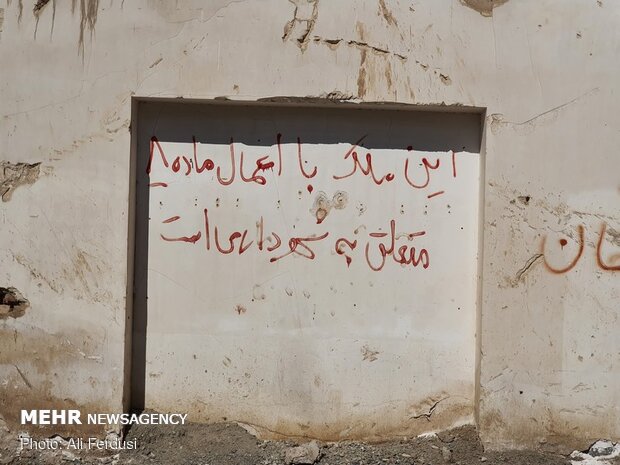 این ملک با اعمال ماده ۸
متعلق به شهرداری است
MEHR NEWSAGENCY
Photo: Ali Ferdusi